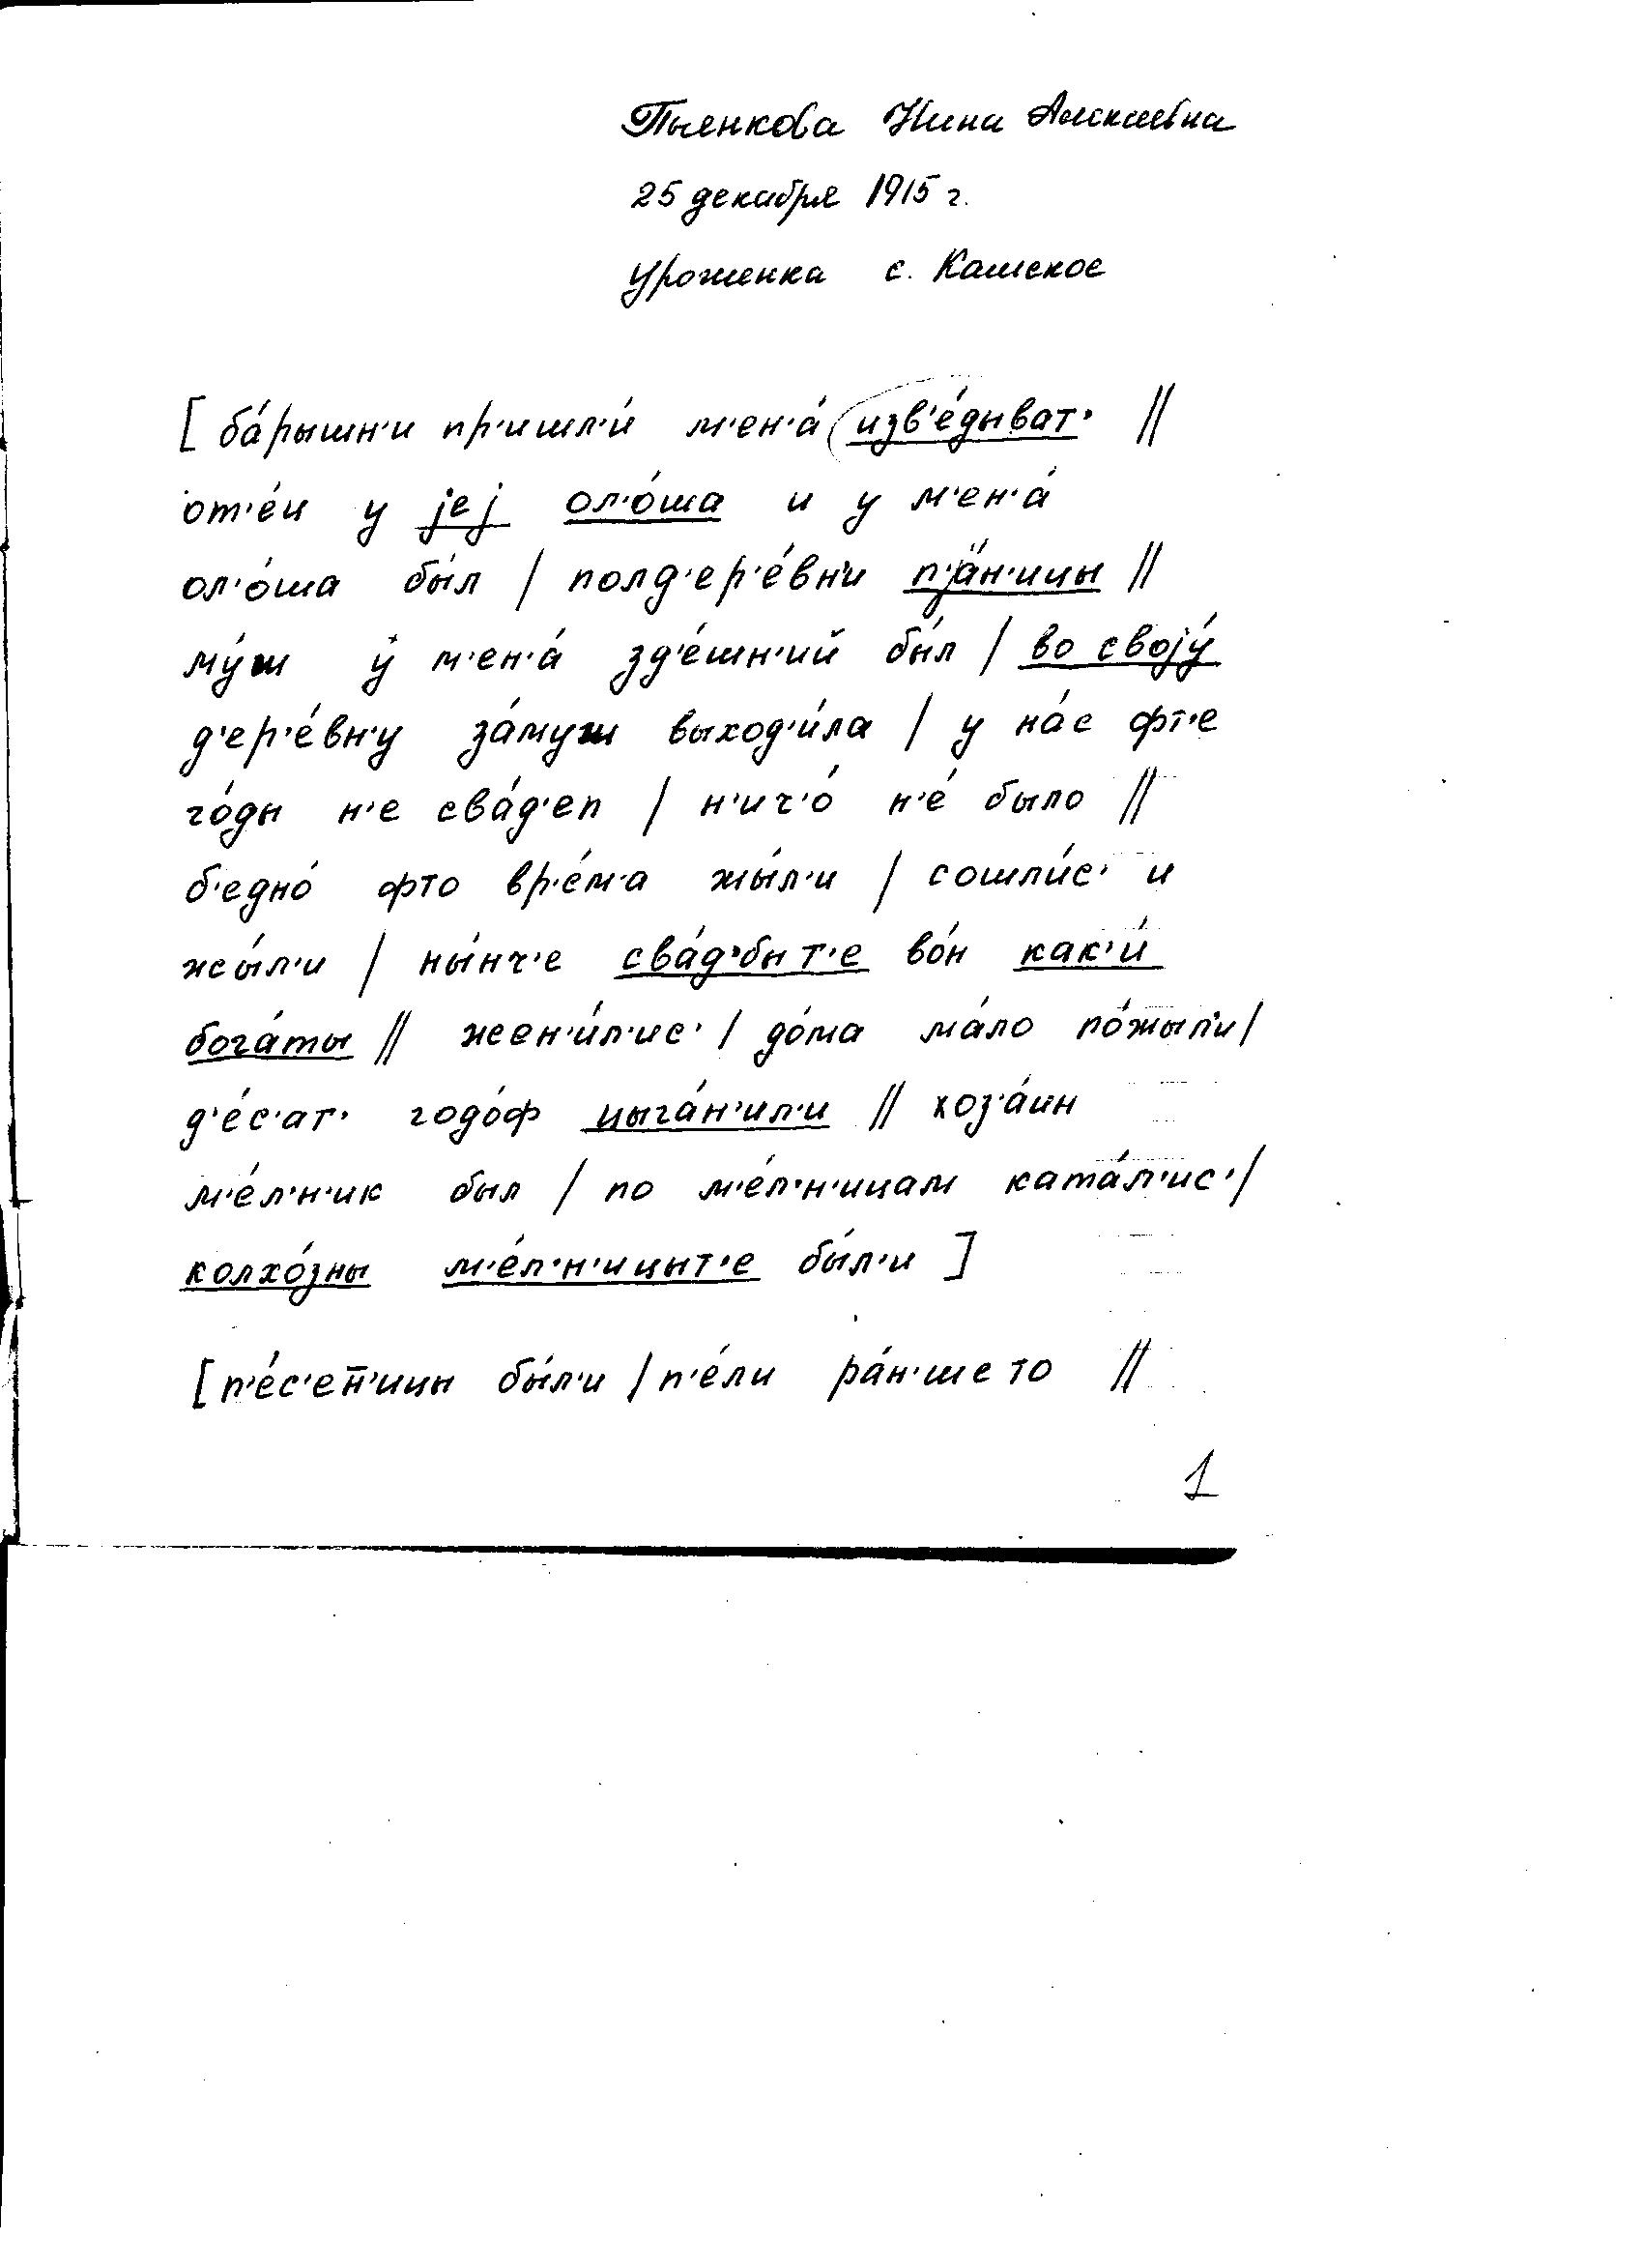 Пьянкова Нина Алексеевна
25 декабря 1915 г.
Уроженка с. Камское
[ ба́рышн'и пр'ишл'и́ м'ен'а́ изв'е́дыват' //
от'е́ц у jеj ол'о́ша и у м'ен'а́
ол'о́ша бы́л / полд'ер'е́вн'и п'jа́н'ицы //
му́ш у́ м'ен'а́ зд'е́шн'ий бы́л / во своjу́
д'ер'е́вн'у за́муш выход'и́ла / у на́с фт'е
го́ды н'е сва́д'еп / н'ич'о́ н'е́ было //
б'едно́ фто вр'е́м'а жы́л'и / сошли́с' и
жы́л'и / ны́нч'е сва́д'быт'е во́н как'и́
бога́ты // жен'и́л'ис' / до́ма ма́ло по́жыл'и /
д'е́с'ат' годо́ф цыга́н'ил'и // хоз'а́ин
м'е́л'н'ик был / по м'е́л'н'ицам ката́л'ис' /
колхо́зны м'е́л'н'ицыт'е бы́л'и ]
[ п'е́с'ен̄'ицы бы́л'и / п'е́ли ра́н'ше то //
1